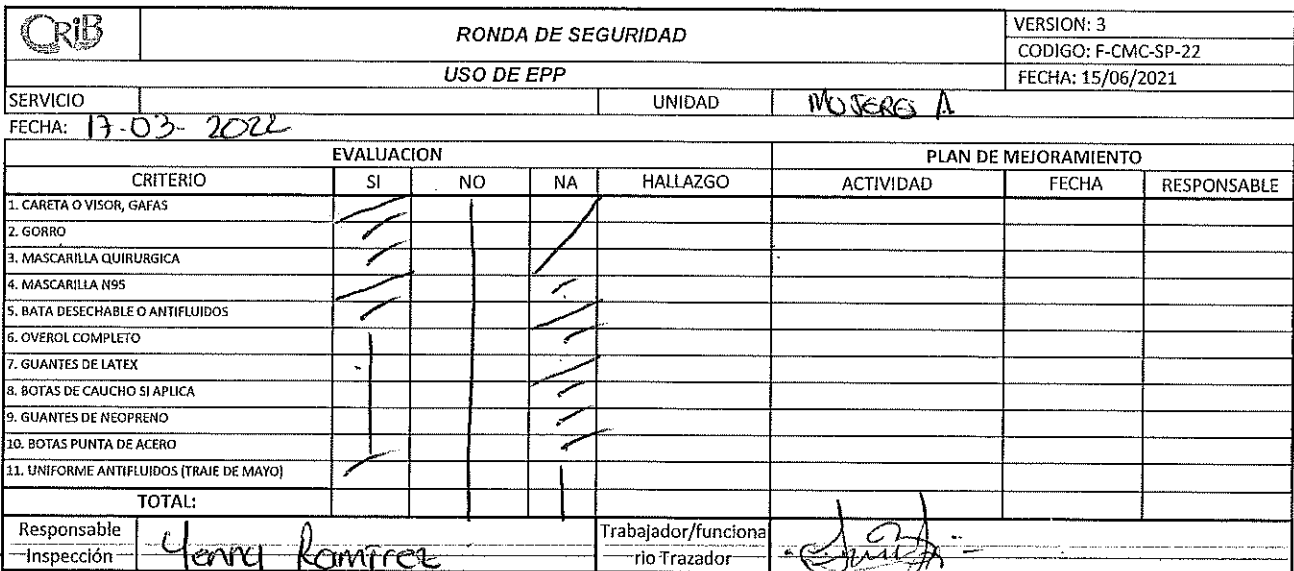 CRiB
RONDA DE SEGURIDAD
VERSION: 3
CODIGO: F-CMC-SP-22
USO DE EPP
FECHA: 15/06/2021
SERVICIO UNIDAD MUJERES A
FECHA: 17-03-2022
EVALUACION PLAN DE MEJORAMIENTO
CRITERIO SI NO NA HALLAZGO ACTIVIDAD FECHA RESPONSABLE
1. CARETA O VISOR, GAFAS
2. GORRO
3. MASCARILLA QUIRURGICA
4. MASCARILLA N95
5. BATA DESECHABLE O ANTIFLUIDOS
6. OVEROL COMPLETO
7. GUANTES DE LATEX
8. BOTAS DE CAUCHO SI APLICA
9. GUANTES DE NEOPRENO
10. BOTAS PUNTA DE ACERO
11. UNIFORME ANTIFLUIDOS (TRAJE DE MAYO)
TOTAL:
Responsable Inspección Yenny Ramírez Trabajador/funciona
rio Trazador